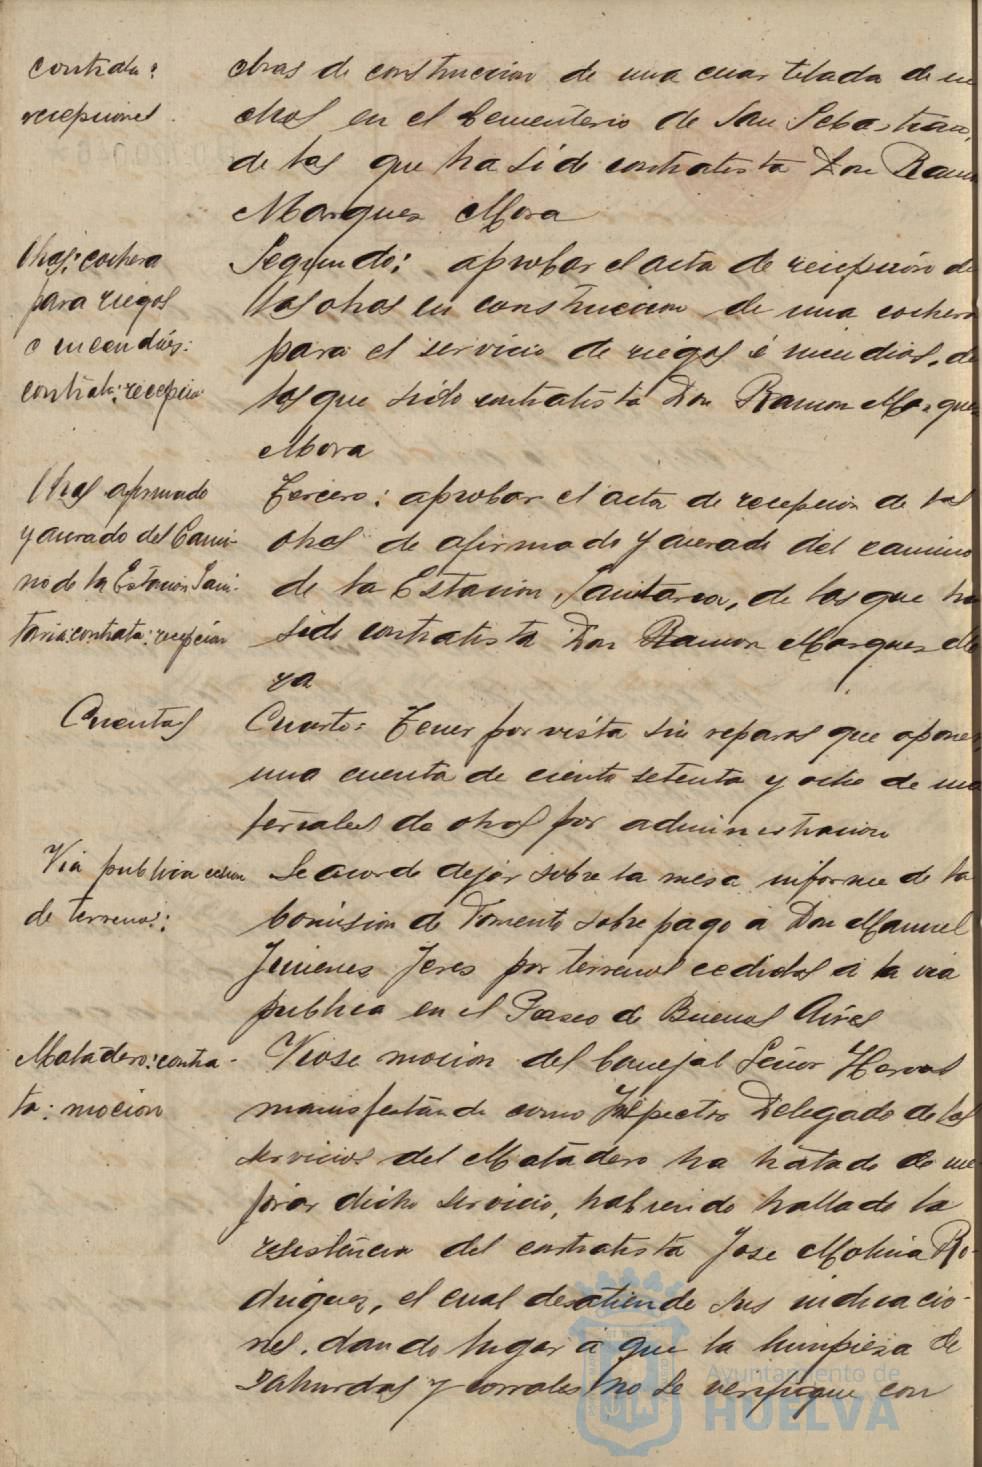 contrata:
recepciones.
obras de construccion de una cuartelada de ni
chos en el Cementerio de San Sebastian,
de las que ha sido contratista Don Ramon
Marquez Mora
Obras: cochera
para riegos
e incendios:
contrata: recepcion
Segundo: aprobar el acta de recepción de
las obras en construccion de una cochera
para el servicio de riegos é incendios, de
las que sido contratista Don Ramon Marquez
Mora
Obras afirmado
y acerado del Cami-
no de la Estacion Sani-
taria: contrata: recepción
Tercero: aprobar el acta de recepcion de las
obras de afirmado y acerado del camino
de la Estacion Sanitaria, de las que ha
sido contratista Don Ramon Marquez Mo
ra
Cuentas
Cuarto: Tener por vista sin reparos que oponer,
una cuenta de ciento setenta y ocho de ma
teriales de obras por administracion
Via publica cesion
de terrenos:
Se acordo dejar sobre la mesa informe de la
Comision de Fomento sobre pago a Don Manuel
Jimenes Jeres por terrenos cedidos a la via
publica en el Paseo de Buenos Aires
Matadero: contra-
ta: mocion
Viose mocion del Concejal Señor Hervas
manifestando como Inspector Delegado de los
servicios del Matadero ha tratado de me
jorar dicho servicio, habiendo hallado la
resistencia del contratista Jose Molina Ro-
driguez, el cual desatiende sus indicacio-
nes, dando lugar a que la limpieza de
zahurdas y corrales no se verifique con
Ayuntamiento de
HUELVA